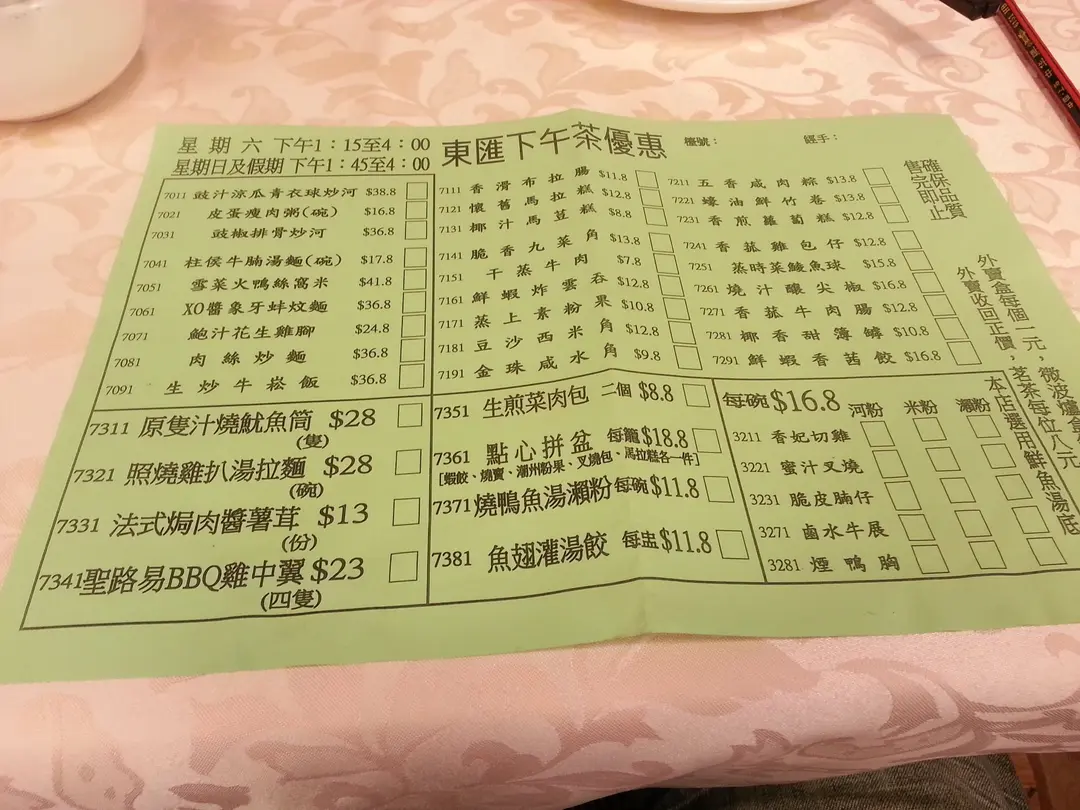 星期六 下午1：15至4：00
星期日及假期 下午1：45至4：00
東匯下午茶優惠
檯號：
經手：
7011 豉汁涼瓜青衣球炒河 $38.8
7021 皮蛋瘦肉粥(碗) $16.8
7031 豉椒排骨炒河 $36.8
7041 柱侯牛腩湯麵(碗) $17.8
7051 雪菜火鴨絲窩米 $41.8
7061 XO醬象牙蚌炆麵 $36.8
7071 鮑汁花生雞腳 $24.8
7081 肉絲炒麵 $36.8
7091 生炒牛崧飯 $36.8
7111 香滑布拉腸 $11.8
7121 懷舊馬拉糕 $12.8
7131 椰汁馬荳糕 $8.8
7141 脆香九菜角 $13.8
7151 干蒸牛肉 $7.8
7161 鮮蝦炸雲吞 $12.8
7171 蒸上素粉果 $10.8
7181 豆沙西米角 $12.8
7191 金珠咸水角 $9.8
7211 五香咸肉粽 $13.8
7221 蠔油鮮竹卷 $13.8
7231 香煎蘿蔔糕 $12.8
7241 香菰雞包仔 $12.8
7251 蒸時菜鯪魚球 $15.8
7261 燒汁釀尖椒 $16.8
7271 香菰牛肉腸 $12.8
7281 椰香甜簿罉 $10.8
7291 鮮蝦香茜餃 $16.8
確保品質
售完即止
7311 原隻汁燒魷魚筒 $28
(隻)
7321 照燒雞扒湯拉麵 $28
(碗)
7331 法式焗肉醬薯茸 $13
(份)
7341 聖路易BBQ雞中翼 $23
(四隻)
7351 生煎菜肉包 二個 $8.8
7361 點心拼盆 每籠 $18.8
[蝦餃、燒賣、潮州粉果、叉燒包、馬拉糕各一件]
7371 燒鴨魚湯瀨粉 每碗 $11.8
7381 魚翅灌湯餃 每盅 $11.8
每碗 $16.8 河粉 米粉 瀨粉
3211 香妃切雞
3221 蜜汁叉燒
3231 脆皮腩仔
3271 鹵水牛展
3281 煙鴨胸
本店選用鮮魚湯底
外賣盒每個一元，微波爐盒
外賣收回正價，茗茶每位八元